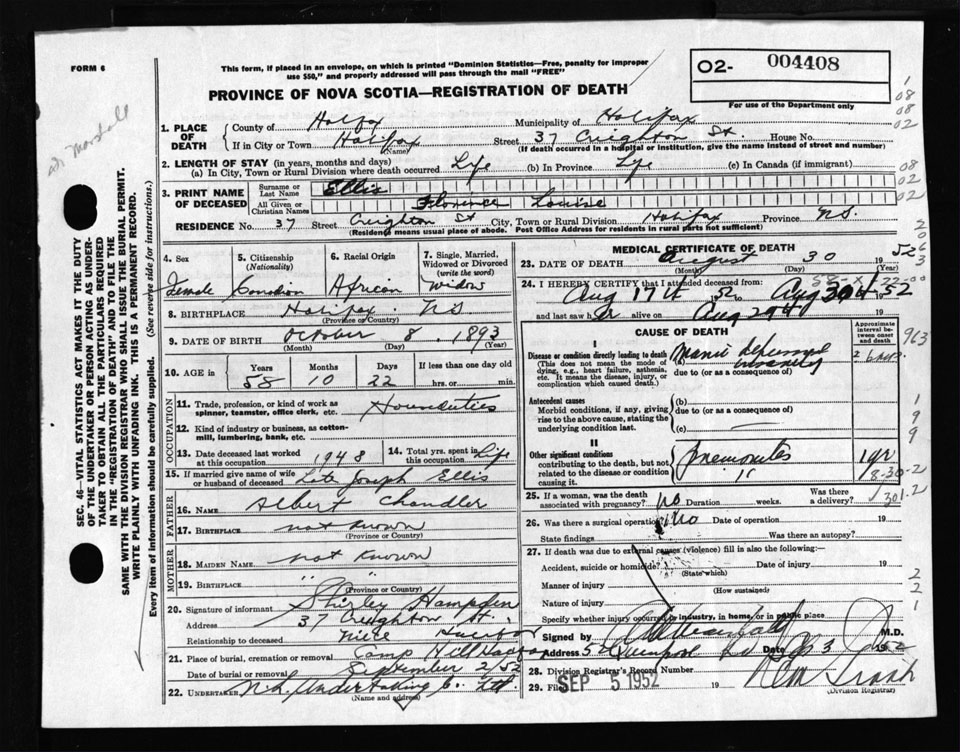 FORM 6
This form, if placed in an envelope, on which is printed "Dominion Statistics—Free, penalty for improper
use $50," and properly addressed will pass through the mail "FREE"
02- 004408
For use of the Department only
PROVINCE OF NOVA SCOTIA—REGISTRATION OF DEATH
1. PLACE OF DEATH
County of Halifax Municipality of Halifax
If in City or Town Halifax (Name) Street 37 Creighton St. House No.
(If death occurred in a hospital or institution, give the name instead of street and number)
2. LENGTH OF STAY (in years, months and days)
(a) In City, Town or Rural Division where death occurred Life (b) In Province Life (c) In Canada (if immigrant)
3. PRINT NAME OF DECEASED
Surname or Last Name Ellis
All Given or Christian Names Florence Louise
RESIDENCE No. 37 Street Creighton St City, Town or Rural Division Halifax Province N.S.
(Residence means usual place of abode. Post Office Address for residents in rural parts not sufficient)
4. Sex Female
5. Citizenship (Nationality) Canadian
6. Racial Origin African
7. Single, Married, Widowed or Divorced (write the word) Widow
8. BIRTHPLACE Halifax. N.S
(Province or Country)
9. DATE OF BIRTH October 8. 1893
(Month) (Day) (Year)
10. AGE Years 58 Months 10 Days 22 If less than one day old hrs. or min.
OCCUPATION
11. Trade, profession, or kind of work as spinner, teamster, office clerk, etc. Houseduties
12. Kind of industry or business, as cotton-mill, lumbering, bank, etc.
13. Date deceased last worked at this occupation 1948
14. Total yrs. spent in this occupation Life
15. If married give name of wife or husband of deceased Late Joseph Ellis
FATHER
16. Name Albert Chandler
17. Birthplace not known
(Province or Country)
MOTHER
18. Maiden Name not known
19. Birthplace " "
(Province or Country)
20. Signature of informant Shirley Hampden
Address 37 Creighton St.
Relationship to deceased Niece Halifax
21. Place of burial, cremation or removal Camp Hill
Date of burial or removal September 2/52
22. UNDERTAKER N.S. Undertaking Co. Ltd.
(Name and address)
MEDICAL CERTIFICATE OF DEATH
23. DATE OF DEATH August 30 1952
(Month) (Day) (Year)
24. I HEREBY CERTIFY that I attended deceased from:
Aug 17th 52 to Aug 1952
and last saw her alive on Aug 29th
CAUSE OF DEATH
Approximate interval between onset and death
I
Disease or condition directly leading to death
(This does not mean the mode of dying, e.g., heart failure, asthenia, etc. It means the disease, injury, or complication which caused death.)
(a) Manic depressive
due to (or as a consequence of)
Antecedent causes
Morbid conditions, if any, giving rise to the above cause, stating the underlying condition last.
(b)
due to (or as a consequence of)
(c)
II
Other significant conditions
contributing to the death, but not related to the disease or condition causing it.
1 yr
25. If a woman, was the death associated with pregnancy? No Duration weeks. Was there a delivery?
26. Was there a surgical operation? No Date of operation 19
State findings Was there an autopsy?
27. If death was due to external causes (violence) fill in also the following:—
Accident, suicide or homicide? Date of injury 19
(State which)
Manner of injury
(How sustained)
Nature of injury
Specify whether injury occurred in industry, in home, or in public place
Signed by M.D.
Address Date 1952
28. Division Registrar's Record Number
29. Filed SEP 5 1952 19
(Division Registrar)
SEC. 46—VITAL STATISTICS ACT MAKES IT THE DUTY
OF THE UNDERTAKER OR PERSON ACTING AS UNDER-
TAKER TO OBTAIN ALL THE PARTICULARS REQUIRED
IN THE "REGISTRATION OF DEATH" AND TO FILE THE
SAME WITH THE DIVISION REGISTRAR WHO SHALL ISSUE THE BURIAL PERMIT.
WRITE PLAINLY WITH UNFADING INK. THIS IS A PERMANENT RECORD.
Every item of information should be carefully supplied. (See reverse side for instructions.)